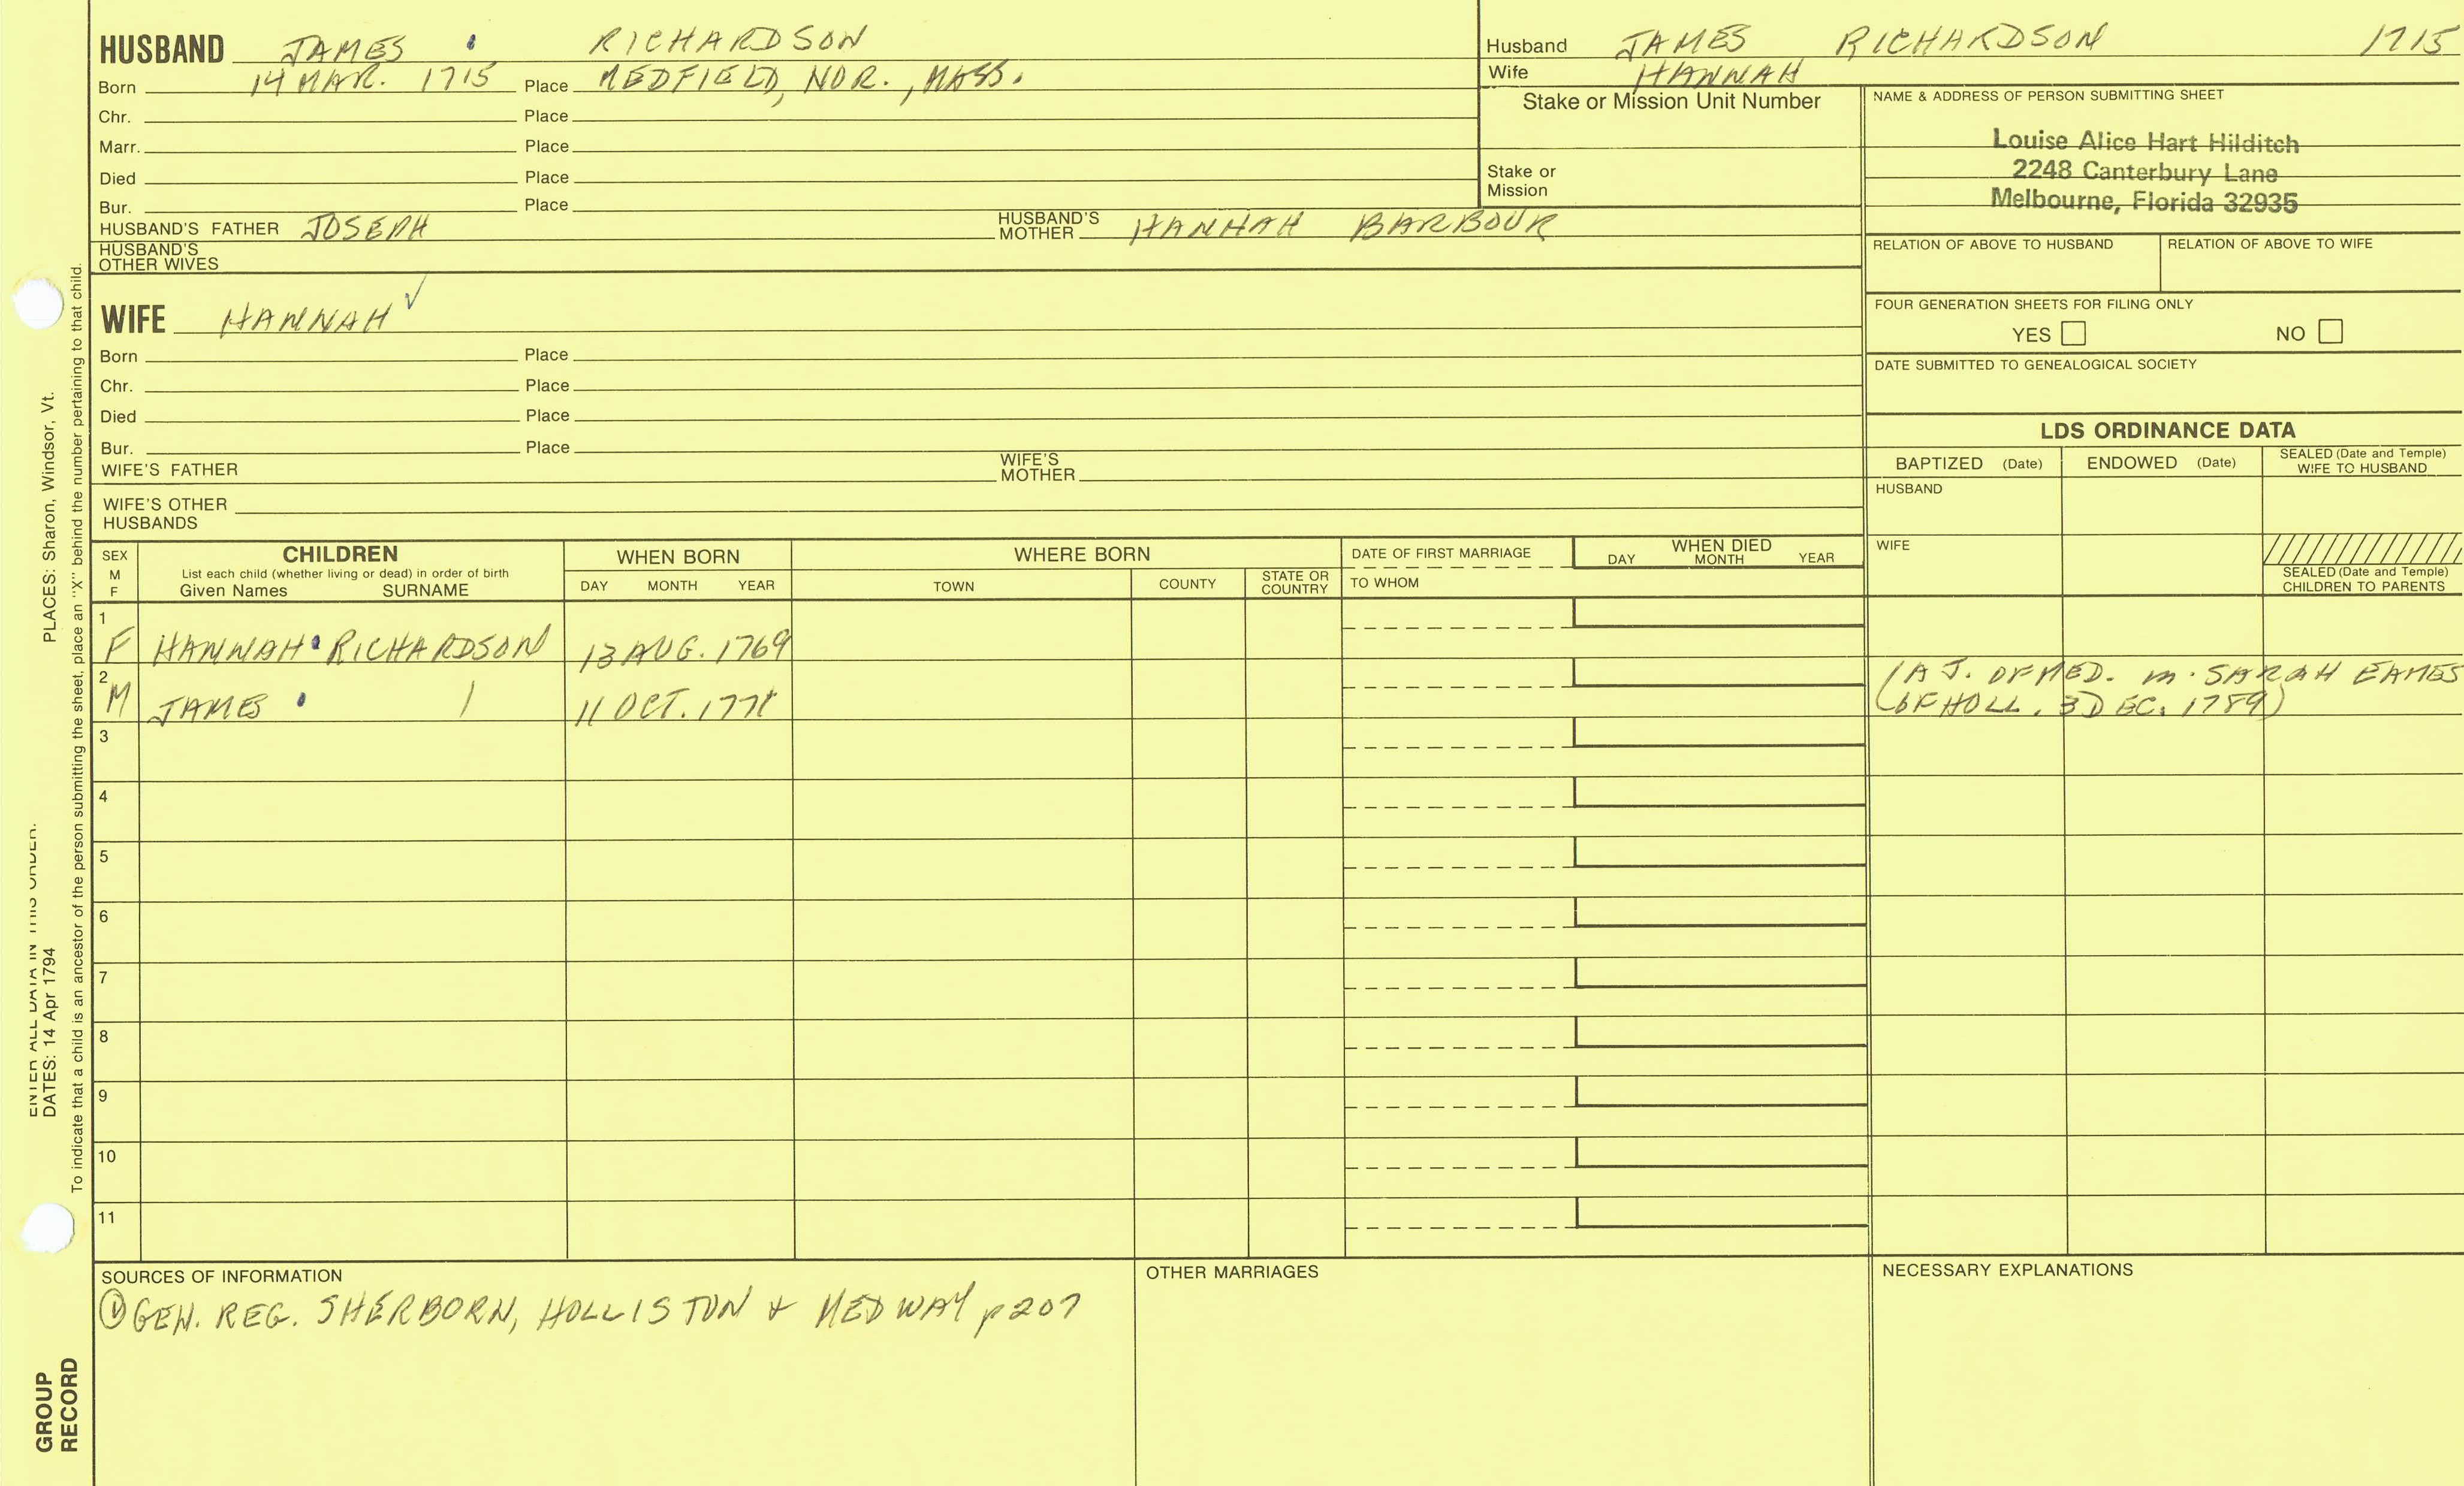 HUSBAND JAMES RICHARDSON
Born 14 MAR. 1715 Place MEDFIELD, NOR., MASS.
Chr. Place
Marr. Place
Died Place
Bur. Place
HUSBAND'S FATHER JOSEPH HUSBAND'S MOTHER HANNAH BARBOUR
HUSBAND'S OTHER WIVES
Husband JAMES RICHARDSON 1715
Wife HANNAH
Stake or Mission Unit Number
Stake or Mission
NAME & ADDRESS OF PERSON SUBMITTING SHEET
Louise Alice Hart Hilditch
2248 Canterbury Lane
Melbourne, Florida 32935
RELATION OF ABOVE TO HUSBAND RELATION OF ABOVE TO WIFE
FOUR GENERATION SHEETS FOR FILING ONLY
YES NO
DATE SUBMITTED TO GENEALOGICAL SOCIETY
WIFE HANNAH ✓
Born Place
Chr. Place
Died Place
Bur. Place
WIFE'S FATHER WIFE'S MOTHER
WIFE'S OTHER HUSBANDS
LDS ORDINANCE DATA
BAPTIZED (Date) ENDOWED (Date) SEALED (Date and Temple) WIFE TO HUSBAND
HUSBAND
WIFE
SEALED (Date and Temple) CHILDREN TO PARENTS
SEX M F
CHILDREN
List each child (whether living or dead) in order of birth
Given Names SURNAME
WHEN BORN
DAY MONTH YEAR
WHERE BORN
TOWN COUNTY STATE OR COUNTRY
DATE OF FIRST MARRIAGE
TO WHOM
WHEN DIED
DAY MONTH YEAR
1 F HANNAH RICHARDSON 13 AUG. 1769
2 M JAMES 11 OCT.
(A J. OF MED. m. SARAH EAMES
(OF HOLL. 3 DEC. 1789)
3
4
5
6
7
8
9
10
11
SOURCES OF INFORMATION
① GEN. REG. SHERBORN, HOLLISTON & MEDWAY p207
OTHER MARRIAGES
NECESSARY EXPLANATIONS
ENTER ALL DATA IN THIS ORDER:
DATES: 14 Apr 1794 PLACES: Sharon, Windsor, Vt.
To indicate that a child is an ancestor of the person submitting the sheet, place an "X" behind the number pertaining to that child.
GROUP
RECORD